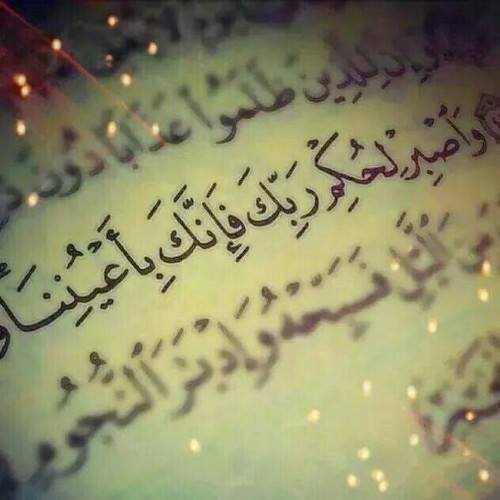 لِلَّذِينَ ظَلَمُوا۟ عَذَابًا دُونَ
وَٱصْبِرْ لِحُكْمِ رَبِّكَ فَإِنَّكَ بِأَعْيُنِنَا
مِنَ ٱلَّيْلِ فَسَبِّحْهُ وَإِدْبَٰرَ ٱلنُّجُومِ